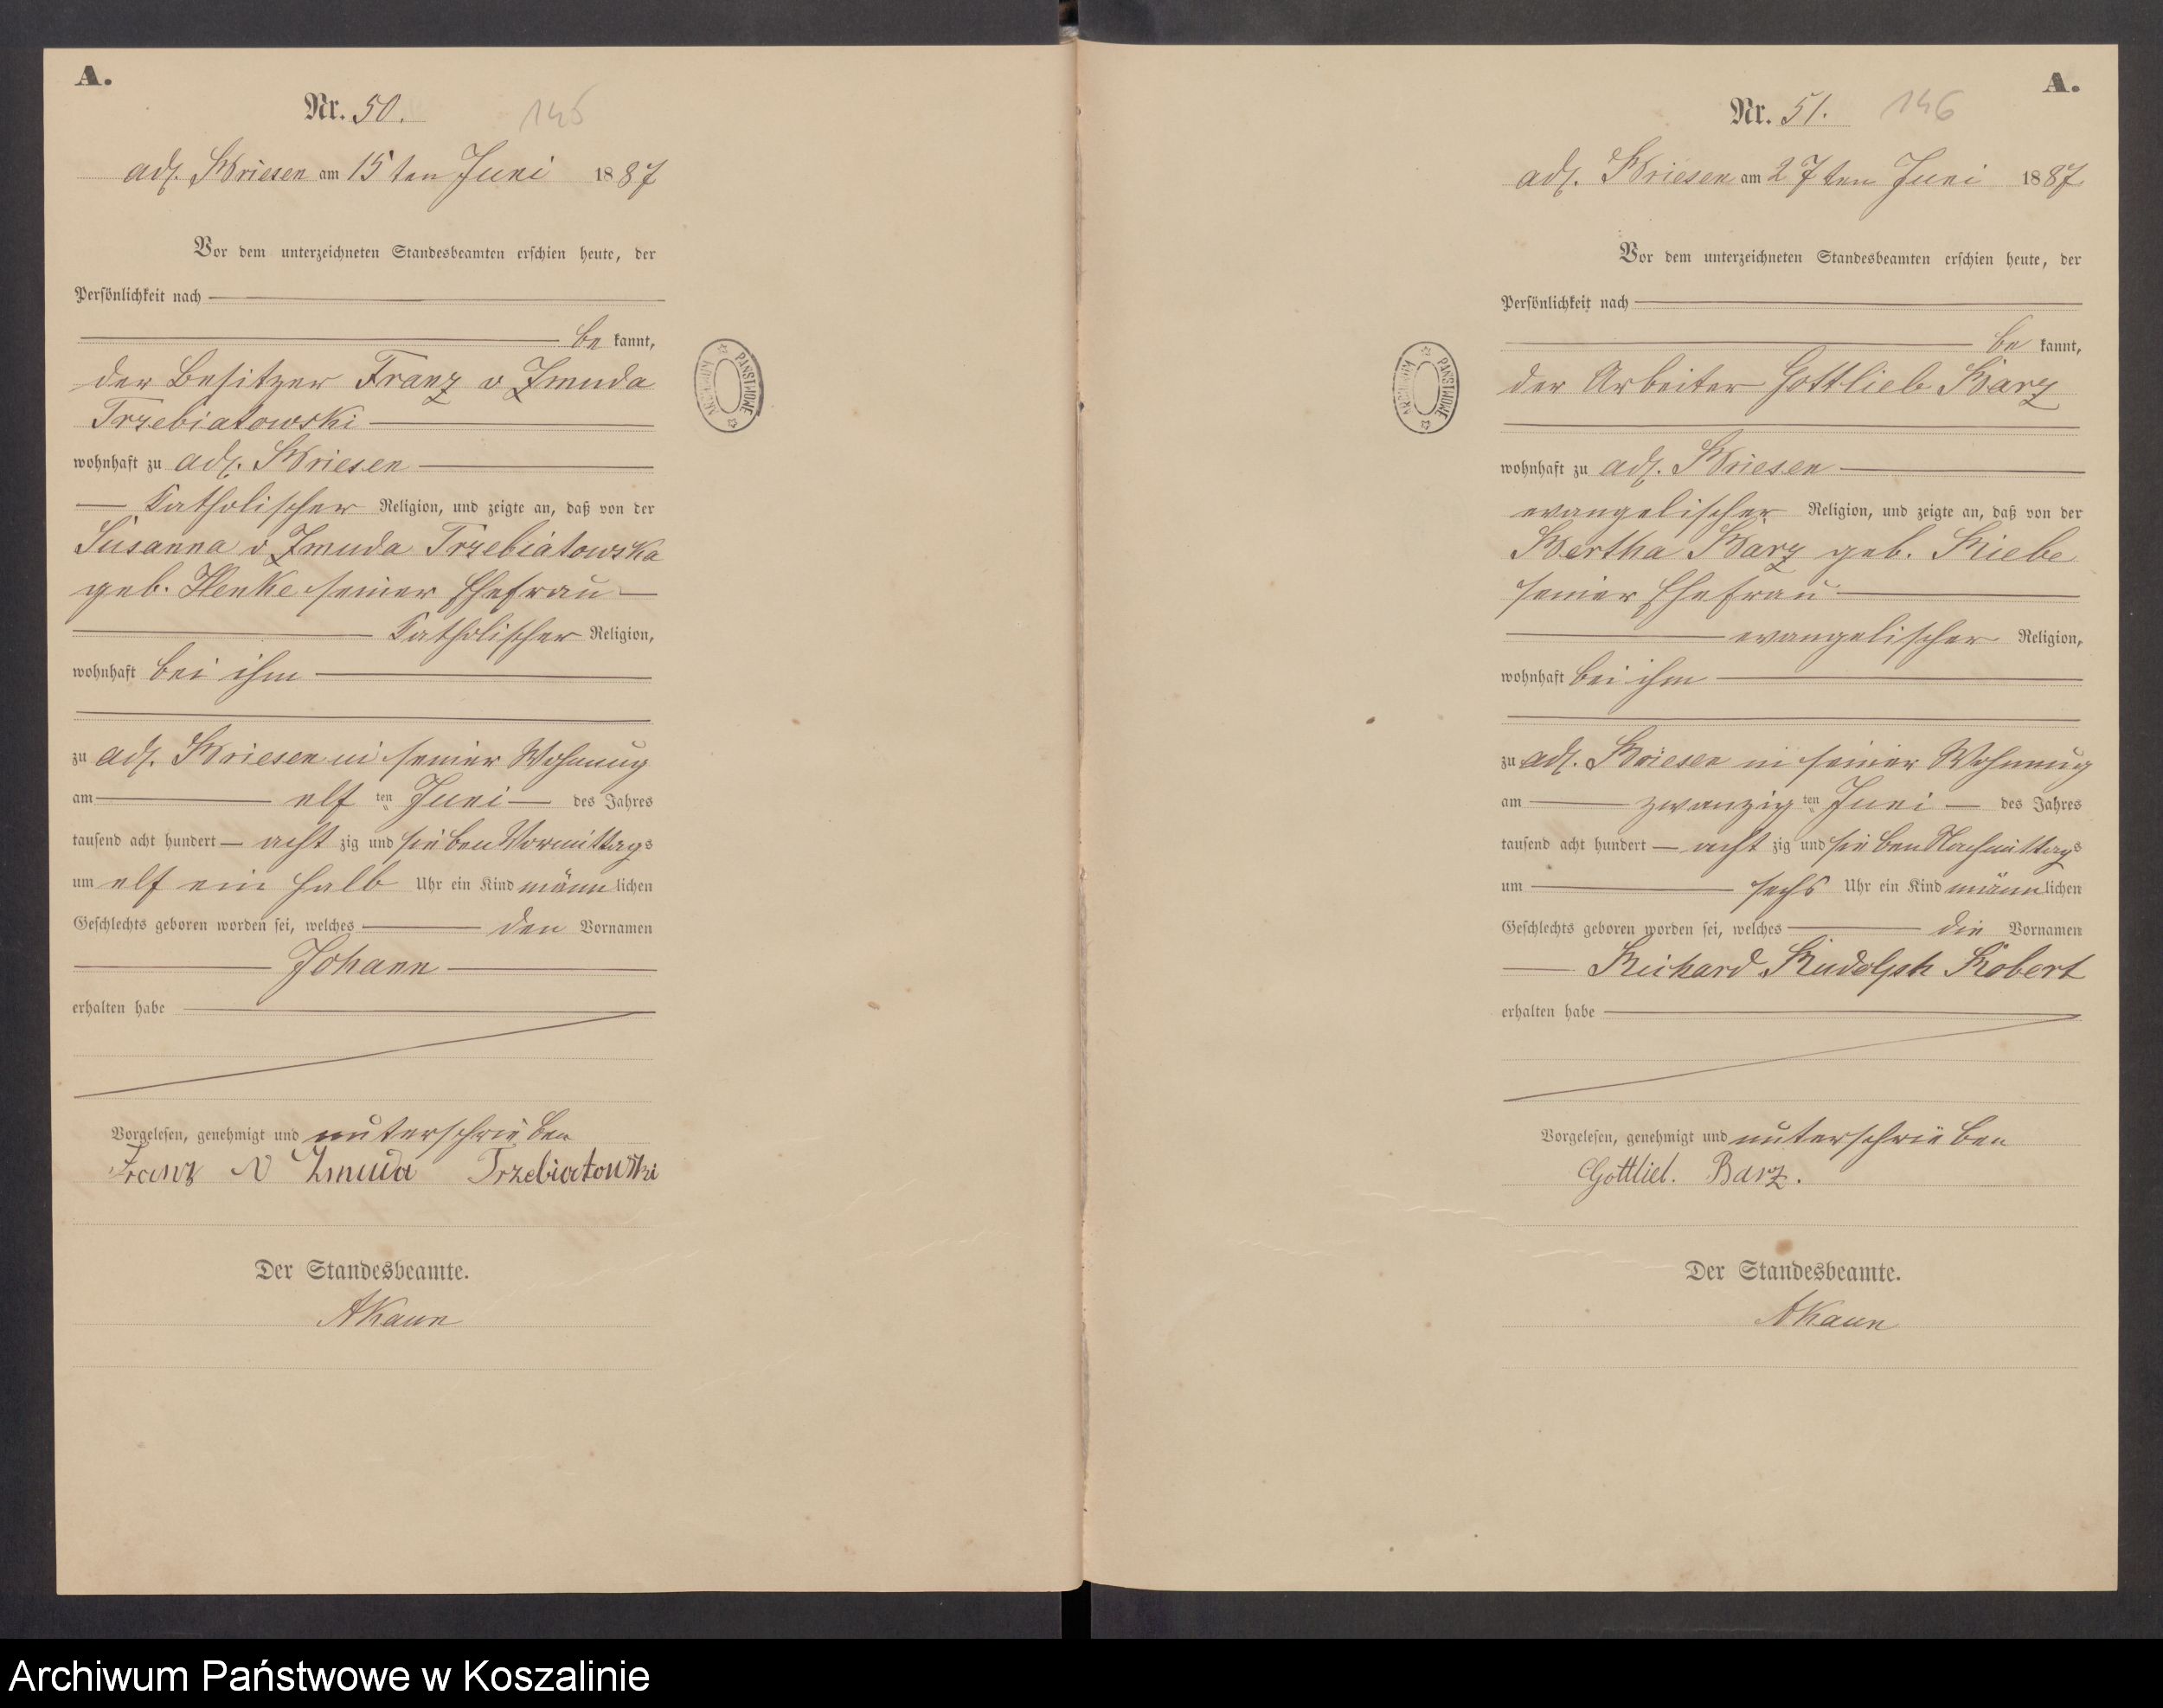 A.
Nr. 50.
145
adl. Briesen am 15 ten Juni 1887
Vor dem unterzeichneten Standesbeamten erschien heute, der
Persönlichkeit nach
be kannt,
der Besitzer Franz v Zmuda
Trzebiatowski
wohnhaft zu adl. Briesen
katholischer Religion, und zeigte an, daß von der
Susanna v Zmuda Trzebiatowska
geb. seiner Ehefrau
katholischer Religion,
wohnhaft bei ihm
zu adl. Briesen in seiner Wohnung
am elf ten Juni des Jahres
tausend acht hundert acht zig und sieben Vormittags
um elf ein halb Uhr ein Kind männlichen
Geschlechts geboren worden sei, welches den Vornamen
Johann
erhalten habe
Vorgelesen, genehmigt und unterschrieben
Franz v Zmuda Trzebiatowski
Der Standesbeamte.
AKaun
ARCHIWUM PAŃSTWOWE
A.
Nr. 51.
146
adl. Briesen am 27ten Juni 1887.
Vor dem unterzeichneten Standesbeamten erschien heute, der
Persönlichkeit nach
be kannt,
der Arbeiter Gottlieb Barz
wohnhaft zu adl. Briesen
evangelischer Religion, und zeigte an, daß von der
Bertha Barz geb. Riebe
seiner Ehefrau
evangelischer Religion,
wohnhaft bei ihm
zu adl. Briesen in seiner Wohnung
am zwanzig ten Juni des Jahres
tausend acht hundert acht zig und sieben Nachmittags
um sechs Uhr ein Kind männlichen
Geschlechts geboren worden sei, welches die Vornamen
Richard Rudolph Robert
erhalten habe
Vorgelesen, genehmigt und unterschrieben
Gottlieb. Barz.
Der Standesbeamte.
AKaun
ARCHIWUM PAŃSTWOWE
Archiwum Państwowe w Koszalinie